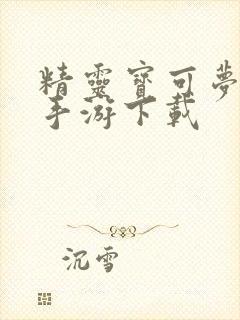 精靈寶可夢
手游下載
沉雪